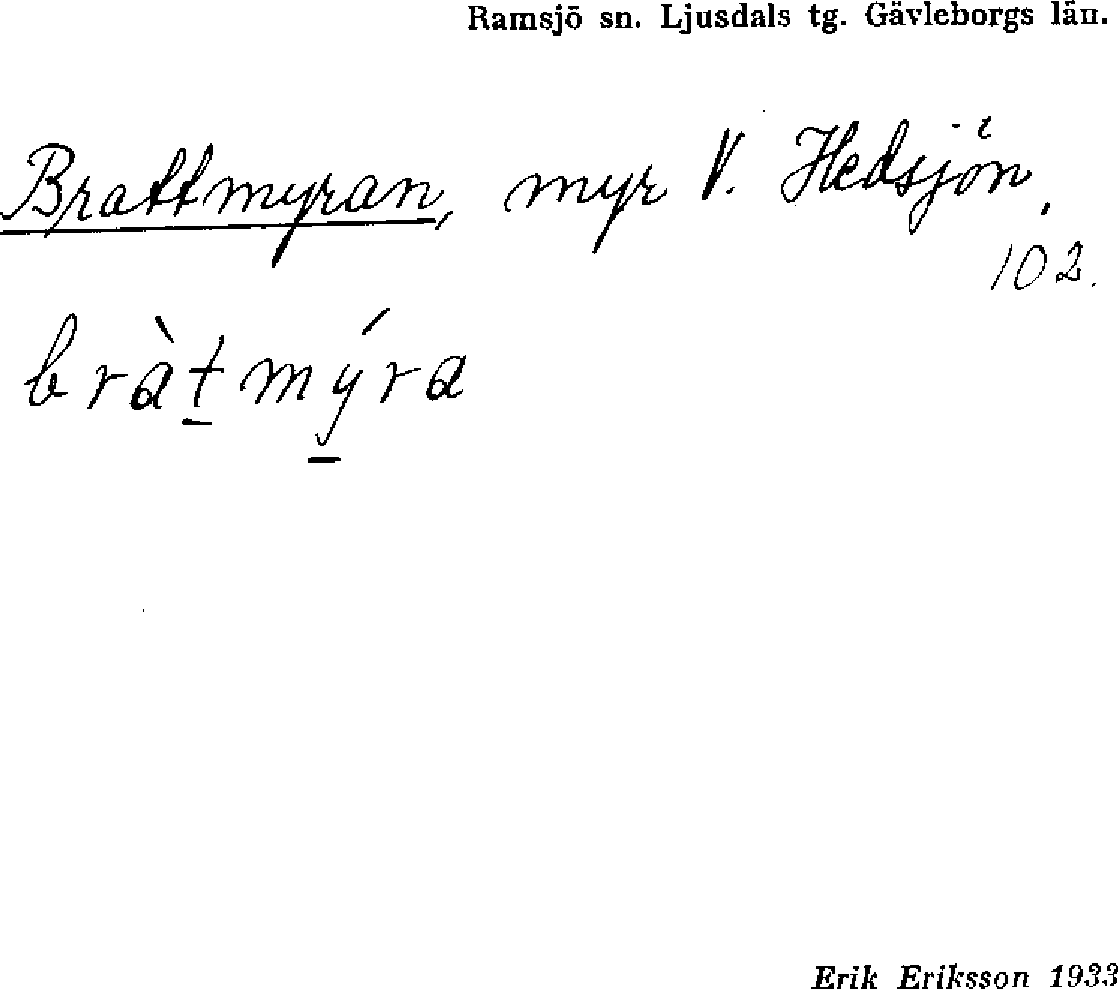 Ramsjö sn. Ljusdals tg. Gävleborgs län.
Brattmyran, myr V. Hedsjön,
102.
bràt̲mý̲ra
Erik Eriksson 1933